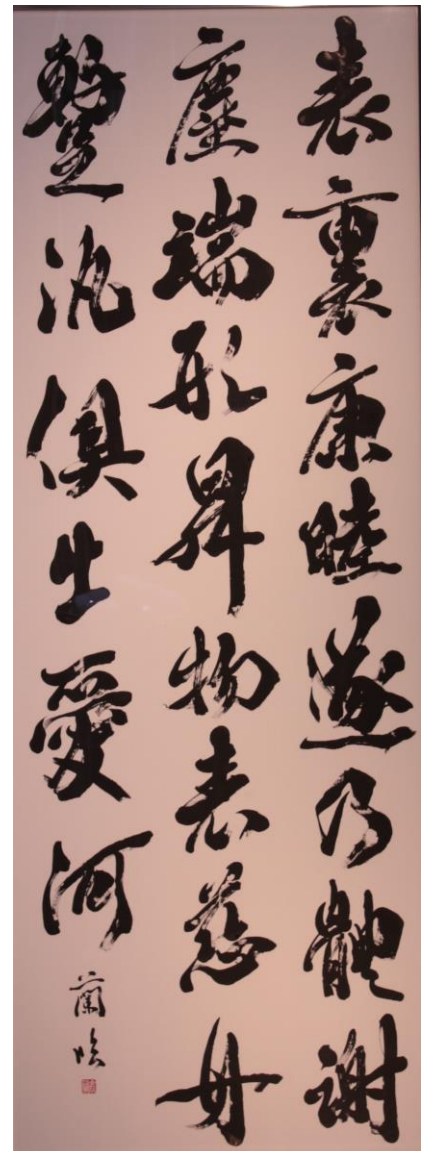 表裏康睦遂乃體謝
塵端形昇物表慈母
蹔汎俱生愛河
蘭